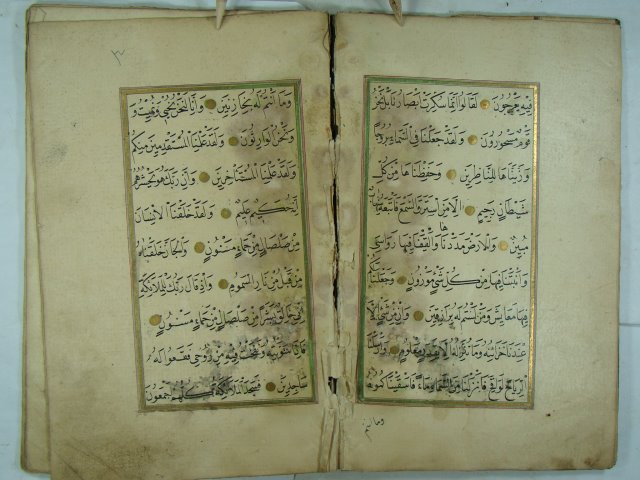 فِيهِ يَعْرُجُونَ لَقَالُوا اِنَّمَا سُكِّرَتْ اَبْصَارُنَا بَلْ نَحْنُ
قَوْمٌ مَسْحُورُونَ وَلَقَدْ جَعَلْنَا فِي السَّمَاءِ بُرُوجًا
وَزَيَّنَّاهَا لِلنَّاظِرِينَ وَحَفِظْنَاهَا مِنْ كُلِّ
شَيْطَانٍ رَجِيمٍ اِلَّا مَنِ اسْتَرَقَ السَّمْعَ فَاَتْبَعَهُ شِهَابٌ
مُبِينٌ وَالْاَرْضَ مَدَدْنَاهَا وَاَلْقَيْنَا فِيهَا رَوَاسِيَ
وَاَنْبَتْنَا فِيهَا مِنْ كُلِّ شَيْءٍ مَوْزُونٍ وَجَعَلْنَا لَكُمْ
فِيهَا مَعَايِشَ وَمَنْ لَسْتُمْ لَهُ بِرَازِقِينَ وَاِنْ مِنْ شَيْءٍ اِلَّا
عِنْدَنَا خَزَائِنُهُ وَمَا نُنَزِّلُهُ اِلَّا بِقَدَرٍ مَعْلُومٍ وَاَرْسَلْنَا
الرِّيَاحَ لَوَاقِحَ فَاَنْزَلْنَا مِنَ السَّمَاءِ مَاءً فَاَسْقَيْنَاكُمُوهُ
وما انتم
وَمَا اَنْتُمْ لَهُ بِخَازِنِينَ وَاِنَّا لَنَحْنُ نُحْيِي وَنُمِيتُ وَ
وَنَحْنُ الْوَارِثُونَ وَلَقَدْ عَلِمْنَا الْمُسْتَقْدِمِينَ مِنْكُمْ
وَلَقَدْ عَلِمْنَا الْمُسْتَأْخِرِينَ وَاِنَّ رَبَّكَ هُوَ يَحْشُرُهُمْ
اِنَّهُ حَكِيمٌ عَلِيمٌ وَلَقَدْ خَلَقْنَا الْاِنْسَانَ
مِنْ صَلْصَالٍ مِنْ حَمَاٍ مَسْنُونٍ وَالْجَانَّ خَلَقْنَاهُ
مِنْ قَبْلُ مِنْ نَارِ السَّمُومِ وَاِذْ قَالَ رَبُّكَ لِلْمَلَائِكَةِ
اِنِّي خَالِقٌ بَشَرًا مِنْ صَلْصَالٍ مِنْ حَمَاٍ مَسْنُونٍ
فَاِذَا سَوَّيْتُهُ وَنَفَخْتُ فِيهِ مِنْ رُوحِي فَقَعُوا لَهُ
سَاجِدِينَ فَسَجَدَ الْمَلَائِكَةُ كُلُّهُمْ اَجْمَعُونَ